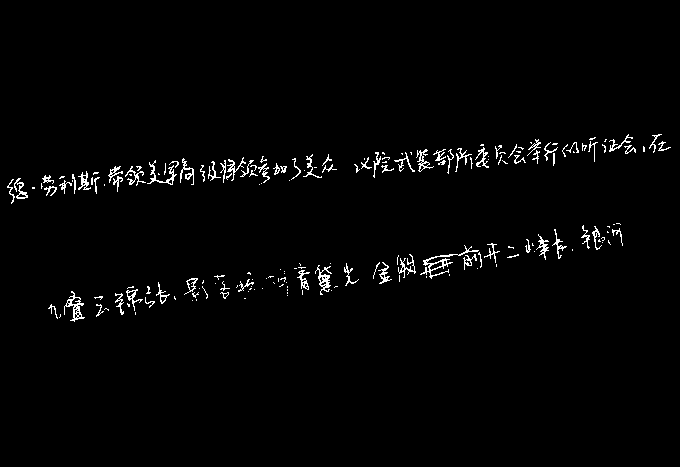 德·劳利斯.带领美军高级将领参加了美众 议院武装部队委员会举行的听证会,在
九叠云锦张、影落明湖青黛光 金阙前开二峰长.银河